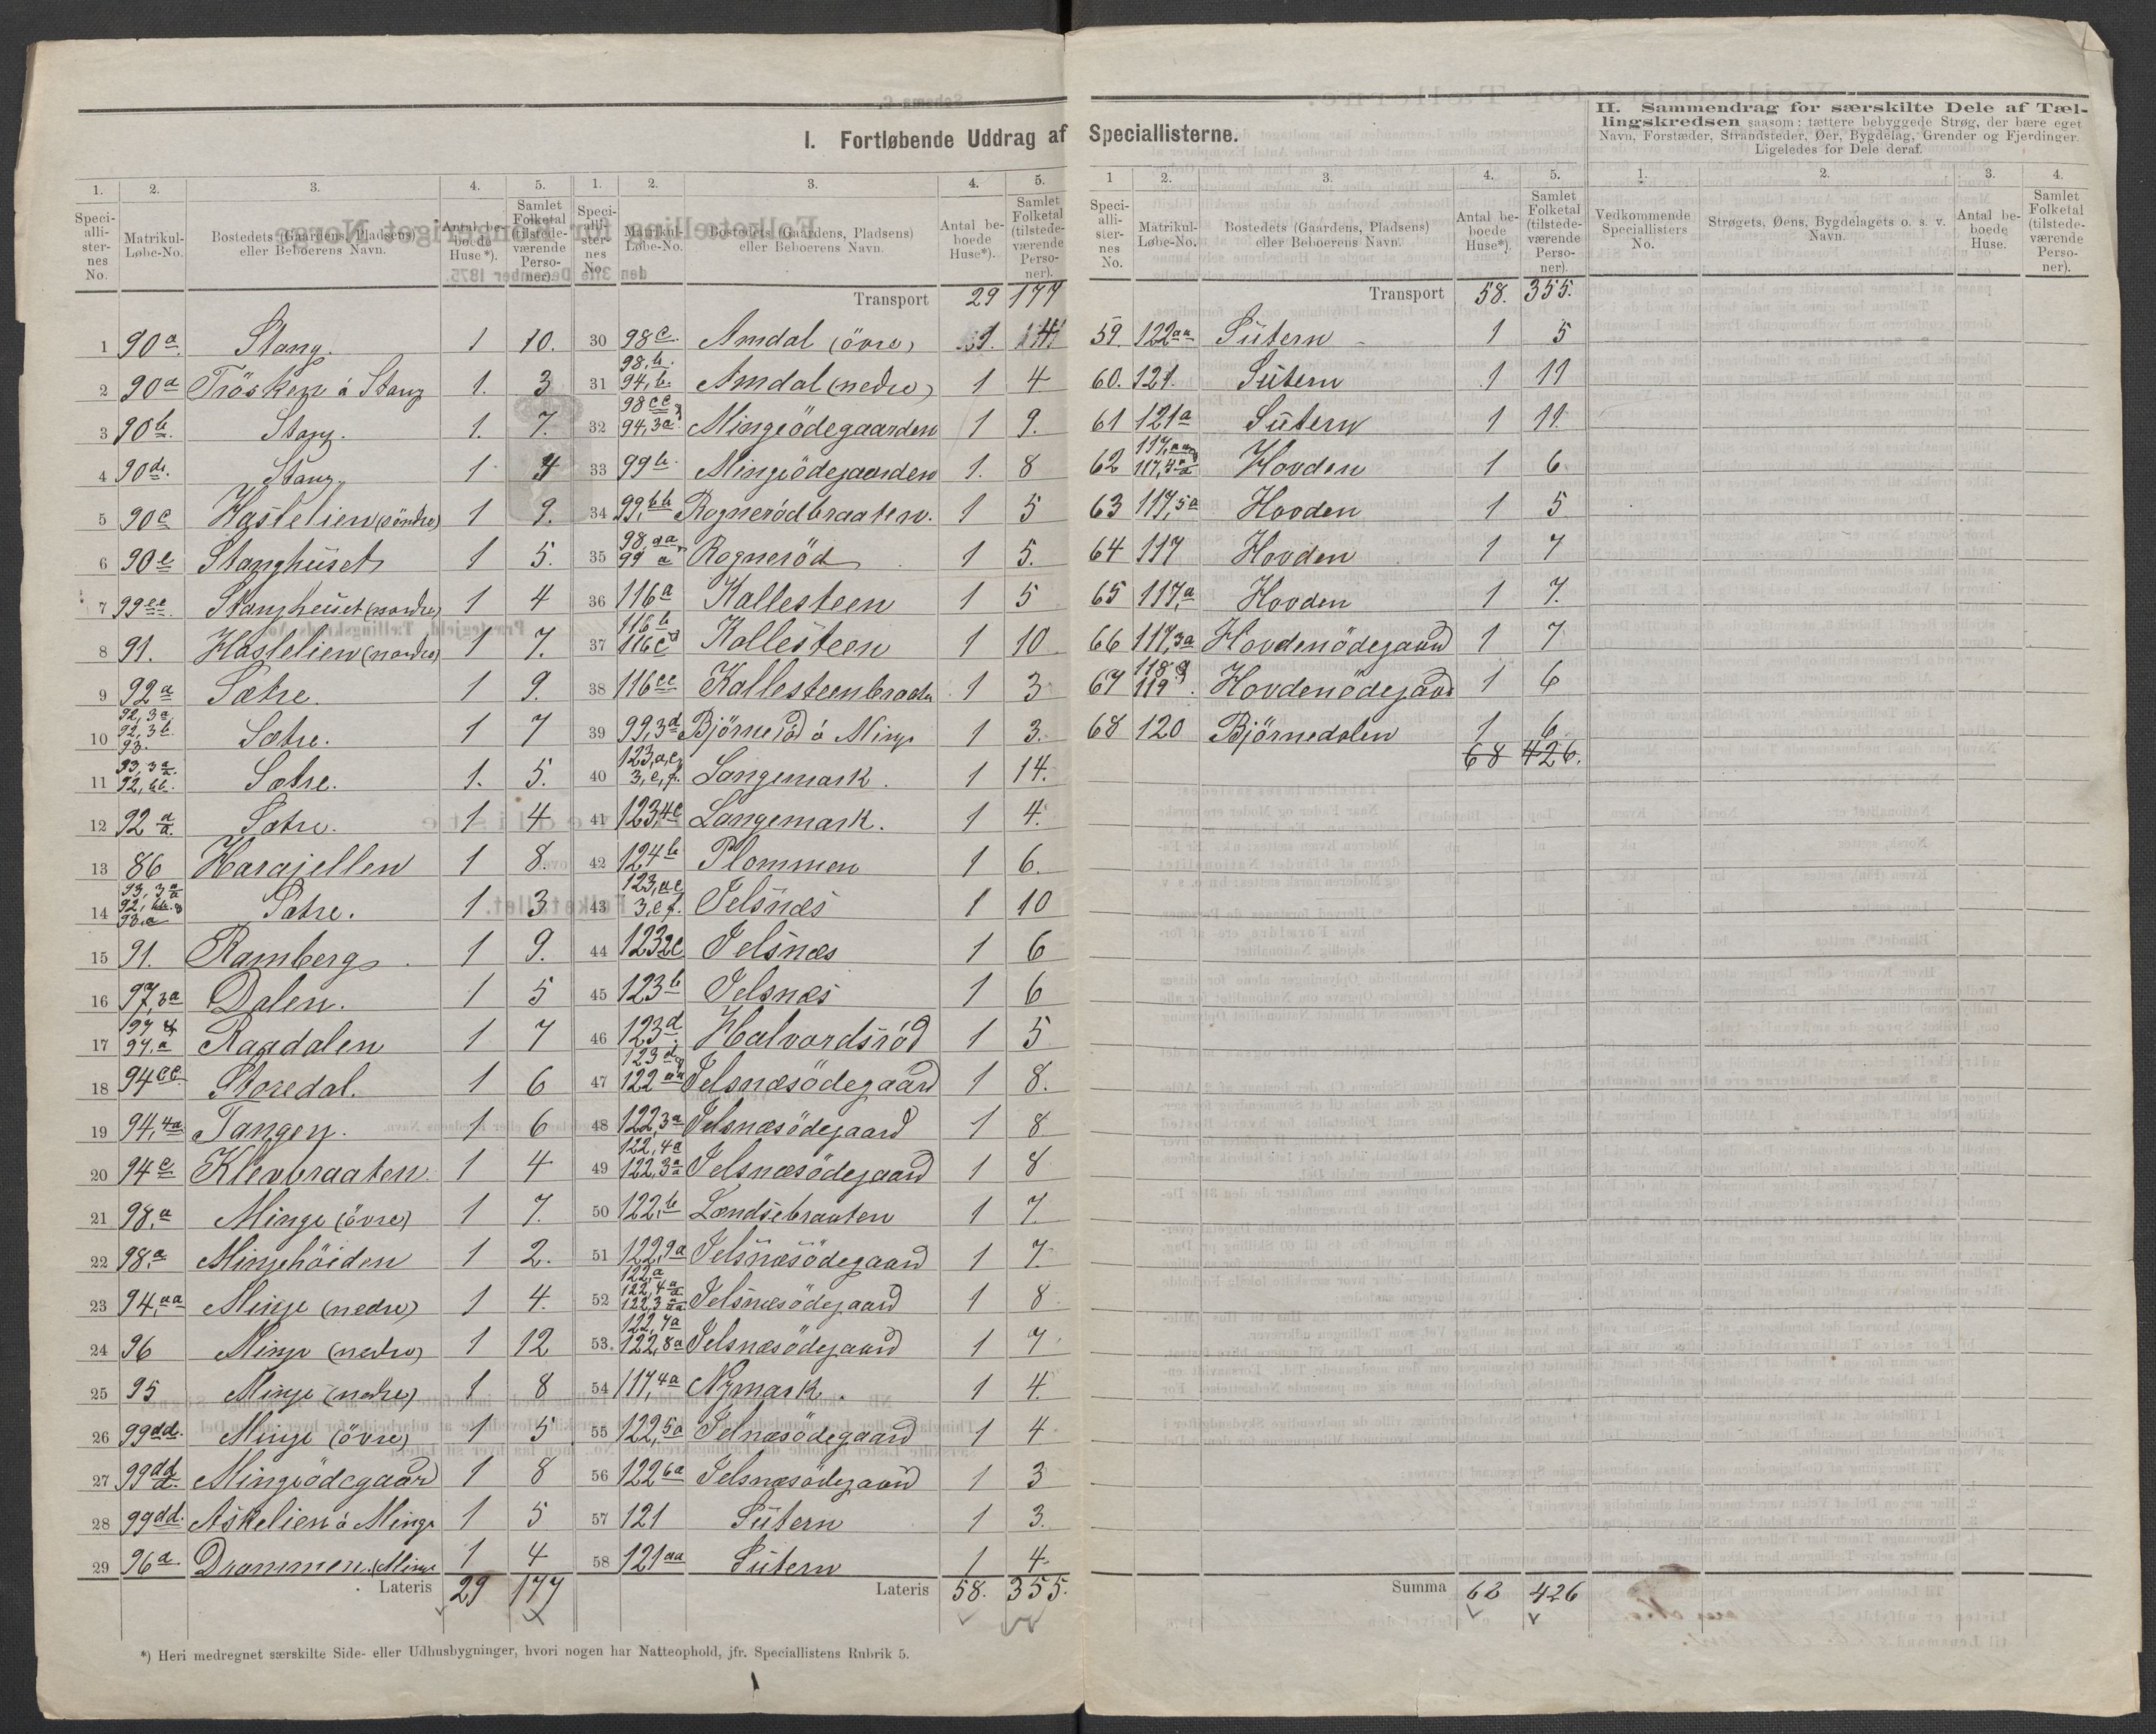 I. Fortløbende Uddrag af Speciallisterne.
II. Sammendrag for særskilte Dele af Tællingskredsen saasom: tættere bebyggede Strøg, der bære eget Navn, Forstæder, Strandsteder, Øer, Bygdelag, Grender og Fjerdinger. Ligeledes for Dele deraf.
1. 2. 3. 4. 5.
Speciallisternes No. Matrikul-Løbe-No. Bostedets (Gaardens, Pladsens) eller Beboerens Navn. Antal beboede Huse*). Samlet Folketal (tilstedeværende Personer).
1 90a. Stang. 1 10.
2 90a Trösken á Stang 1. 3
3 90b. Stang. 1. 7.
4 90d. Stang. 1 4
5 90c Hastelien (söndre) 1 9.
6 90e Stanghuset 1 5.
7 99ee. Stanghuset (nordre) 1 4
8 91. Hastelien (nordre) 1 7.
9 92a Sætre. 1 9.
10 92,3a. 92,3b. 93. Sætre. 1 7
11 93,3a/a. 92,bb. Sætre. 1. 5.
12 92a/a. Sætre. 1 4
13 86 Harajellen 1 8.
14 93,3a/a 92,bb. & 93.a Sætre. 1 3
15 91. Ramberg 1 9.
16 97,3a Dalen. 1 5
17 97,a Raadalen 1 7
18 94cc. Storedal. 1 6
19 94,4a Tangen. 1 6
20 94c Klevbraaten. 1 4
21 98,a Minge (övre) 1 7.
22 98,a Mingehöiden 1 2.
23 94,aa Minge (nedre) 1 4.
24 96 Minge (nedre) 1 12
25 95 Minge (nedre) 1 8
26 99dd. Minge (övre) 1 5
27 99dd/d. Mingeödegaard 1 8
28 99dd. Askelien á Minge 1 5
29 96a. Drammen. (Minge 1 4
Lateris 29 177
1. 2. 3. 4. 5.
Speciallisternes No. Matrikul-Løbe-No. Bostedets (Gaardens, Pladsens) eller Beboerens Navn. Antal beboede Huse*). Samlet Folketal (tilstedeværende Personer).
Transport 29 177
30 98c. Amdal (övre) 1. 14
31 98,b. 94,b. Amdal (nedre) 1 4
32 98cc & 94,3a. Mingeödegaarden 1 9.
33 99b. Mingeödegaarden 1. 8
34 99,bb Rognerödbraaten. 1 5
35 98,aa 99a Rogneröd 1 5.
36 116a Kallesteen 1 5
37 116b & 116c Kallesteen 1 10
38 116cc Kallesteenbraaten 1 3
39 99,3d Björneröd á Minge 1 3.
40 123,a,c, 3,e,f. Langemark. 1 14.
41 123,4c Langemark. 1 4.
42 124b Plommen 1 6.
43 123,ac 3,e f. Jelsnæs 1 10
44 1232c Jelsnæs 1 6
45 123b Jelsnæs 1 6
46 123d. Halvordsröd 1 5
47 123d & 122aa Jelsnæsödegaard 1 8.
48 122,3a Jelsnæsödegaard 1 8
49 122,4a 122,3a/a Jelsnæsödegaard 1 8
50 122,b Lændsebraaten 1 7.
51 122,9a Jelsnæsödegaard 1 7.
52 122,a 122,4a/a 122,3a/aa Jelsnæsödegaard 1 8
53. 122,7a 122,8a Jelsnæsödegaard 1 7.
54 117,4a Nymark. 1 4.
55 122,5a Jelnæsödegaard 1 4
56 1226a Jelsnæsödegaard 1 3
57 121 Sütern 1 3.
58 121aa Sütern 1 4.
Lateris 58. 355.
*) Heri medregnet særskilte Side- eller Udhusbygninger, hvori nogen har Natteophold, jfr. Speciallistens Rubrik 5.
1 2. 3. 4. 5.
Speciallisternes No. Matrikul-Løbe-No. Bostedets (Gaardens, Pladsens) eller Beboerens Navn. Antal beboede Huse*). Samlet Folketal (tilstedeværende Personer).
Transport 58. 355.
59. 122aa Sütern 1 5
60. 121. Sütern 1 11
61 121a Sütern 1 11
62 117,aa & 117,4a/a Hovden 1 6
63 117,5a Hovden 1 5
64 117 Hovden 1 7
65 117,a Hovden 1 7.
66 117,3a Hovdenödegaard 1 7
67 118 & 119. Hovdenödegaard 1 6
68 120 Björnedalen 1 6.
68 426.
Summa 68 426
1. 2. 3. 4.
Vedkommende Speciallisters No. Strøgets, Øens, Bygdelagets o. s. v. Navn. Antal beboede Huse. Samlet Folketal (tilstedeværende Personer).